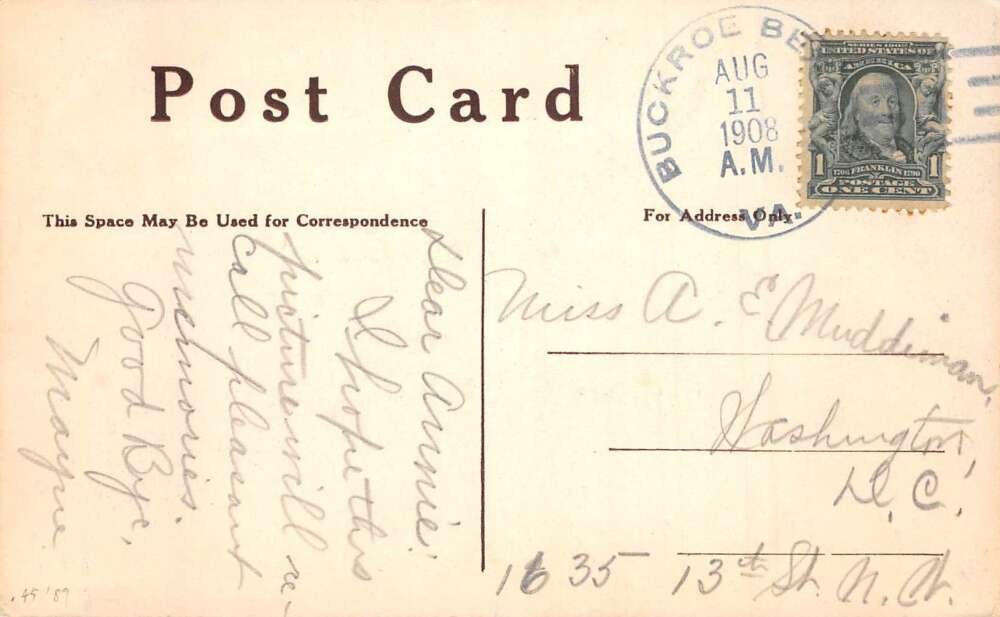 Post Card
This Space May Be Used for Correspondence
For Address Only.
BUCKROE BE
AUG
11
1908
A.M.
VA.
SERIES 1902
UNITED STATES OF
AMERICA
1706 FRANKLIN 1790
1 1
POSTAGE
ONE CENT
Dear Annie:
I hope this
picture will re-
call pleasant
memories.
Good Bye,
Mayme.
Miss A. E. Muddiman,
Washington,
D.C.
1635 13th St. N.W.
.45 '89